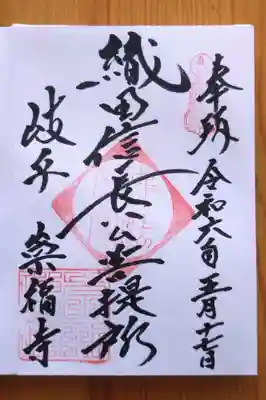 奉拝 令和六年五月十七日
織田信長公菩提所
岐阜 崇福寺